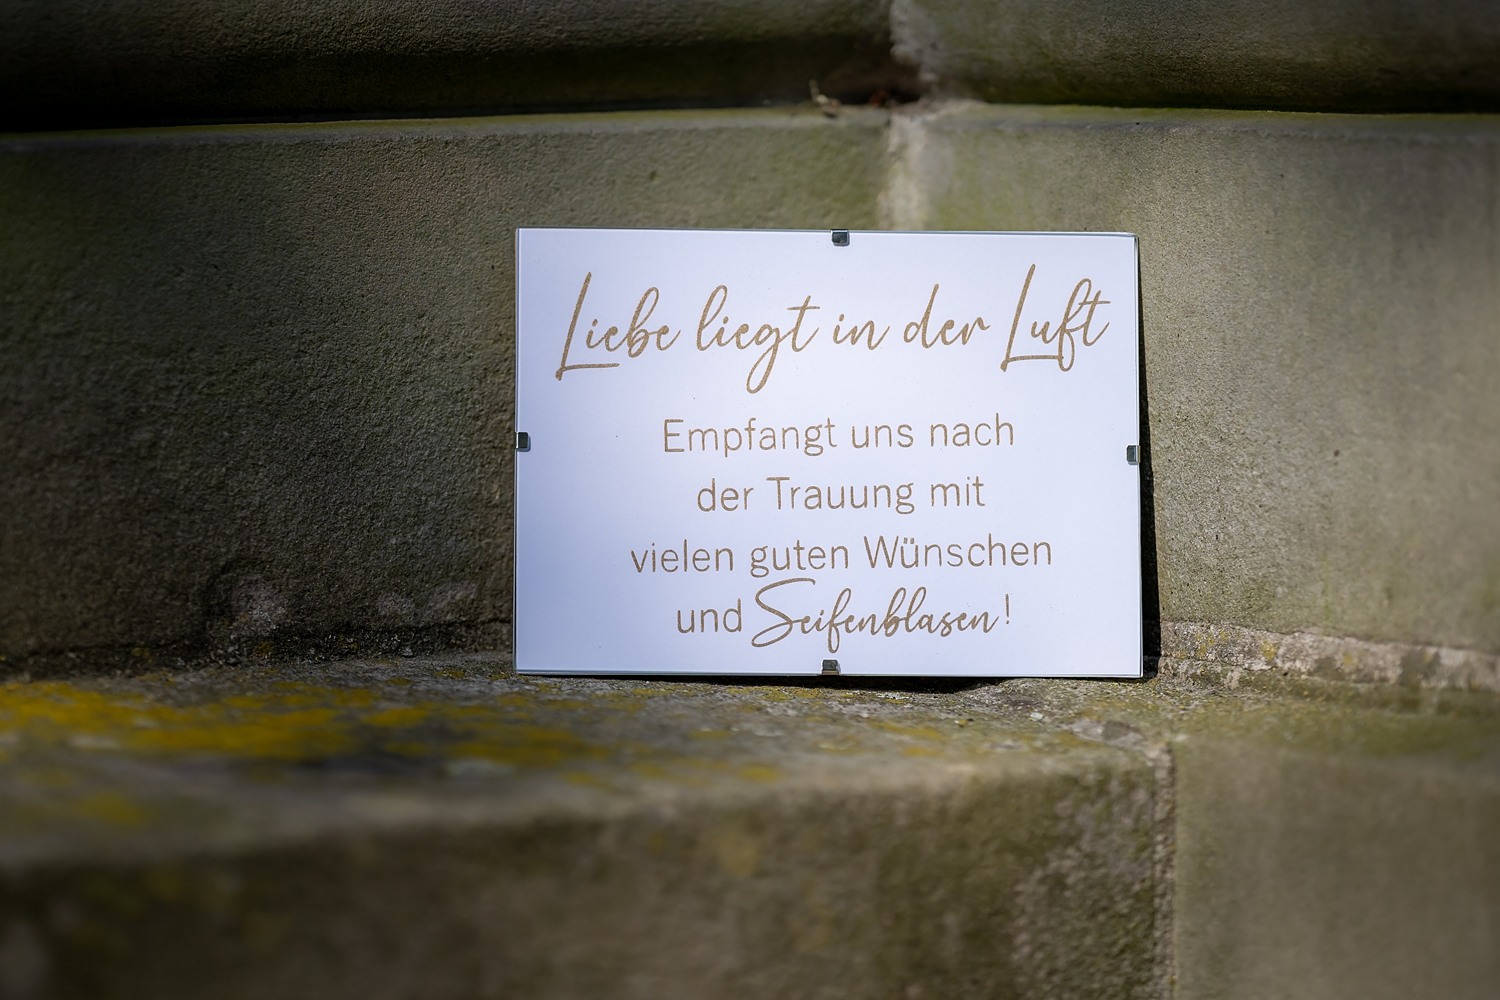 Liebe liegt in der Luft
Empfangt uns nach
der Trauung mit
vielen guten Wünschen
und Seifenblasen!